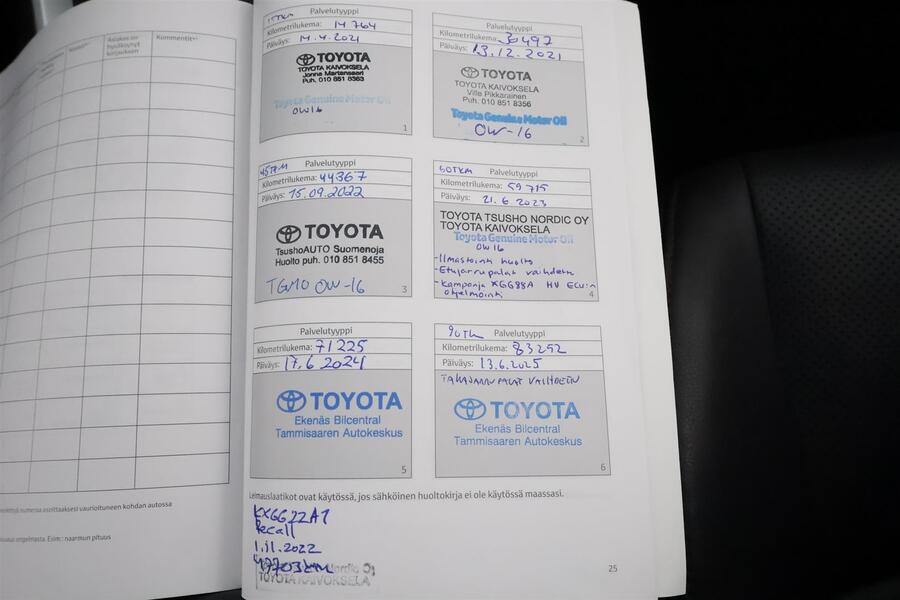 Asiakas on
hyväksynyt
korjauksen
Kommentit
15TKM Palvelutyyppi
Kilometrilukema: 14 764
Päiväys: 14.4.2021
TOYOTA
TOYOTA KAIVOKSELA
Jonna Martensson
Puh. 010 851 8363
Toyota Genuine Motor Oil
0W16
1
Palvelutyyppi
Kilometrilukema: 30497
Päiväys: 13.12.2021
TOYOTA
TOYOTA KAIVOKSELA
Ville Pikkarainen
Puh. 010 851 8356
Toyota Genuine Motor Oil
0W-16
2
45TKM Palvelutyyppi
Kilometrilukema: 44367
Päiväys: 15.09.2022
TOYOTA
TsushoAUTO Suomenoja
Huolto puh. 010 851 8455
TGMO 0W-16
3
60TKM Palvelutyyppi
Kilometrilukema: 59 715
Päiväys: 21.6 2023
TOYOTA TSUSHO NORDIC OY
TOYOTA KAIVOKSELA
Toyota Genuine Motor Oil
0W16
-Ilmastointi huolto
-Etujarrupalat vaihdettu
-Kampanja XGG88A HV ECU:n
ohjelmointi
4
Palvelutyyppi
Kilometrilukema: 71225
Päiväys: 17.6 2024
TOYOTA
Ekenäs Bilcentral
Tammisaaren Autokeskus
5
90TKM Palvelutyyppi
Kilometrilukema: 83252
Päiväys: 13.6.2025
TAKAJARRUPALAT VAIHDETTU
TOYOTA
Ekenäs Bilcentral
Tammisaaren Autokeskus
6
Leimauslaatikot ovat käytössä, jos sähköinen huoltokirja ei ole käytössä maassasi.
Recall
1.11.2022
47703KM
Nordic Oy
TOYOTA KAIVOKSELA
25
numeroa osoittaaksesi vaurioituneen kohdan autossa
ongelmasta. Esim.: naarmun pituus